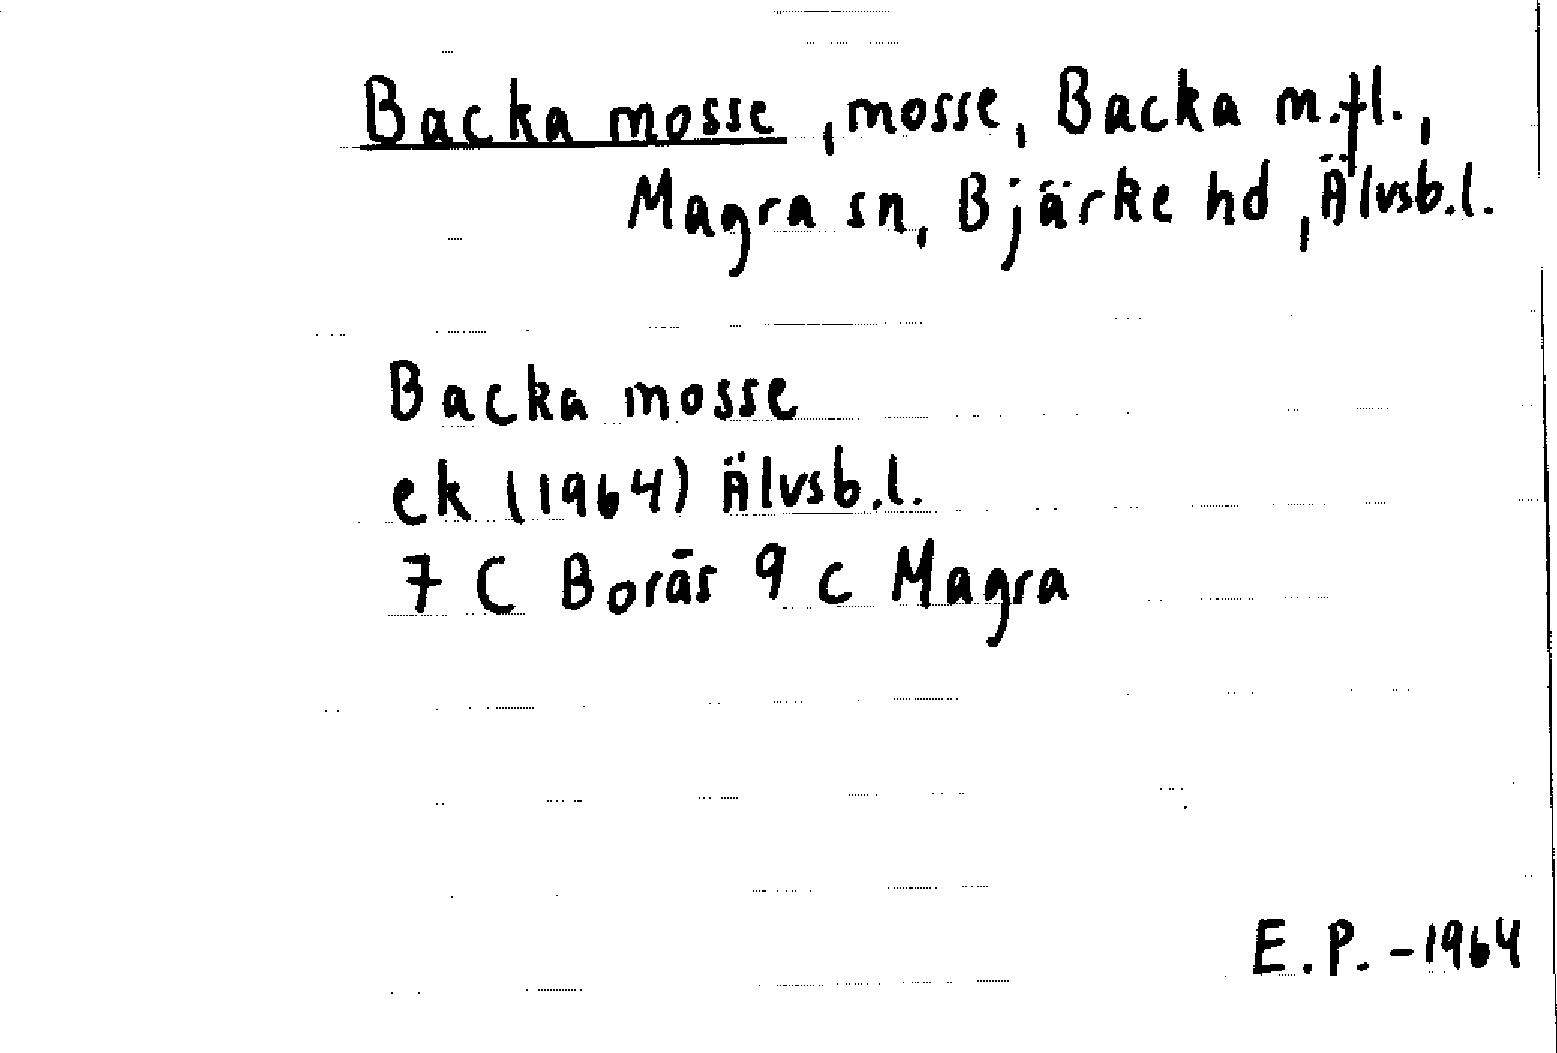 Backa mosse, mosse, Backa m.fl.,
Magra sn, Bjärke hd, Älvsb.l.
Backa mosse
ek (1964) Älvsb.l.
7 C Borås 9 c Magra
E.P. -1964